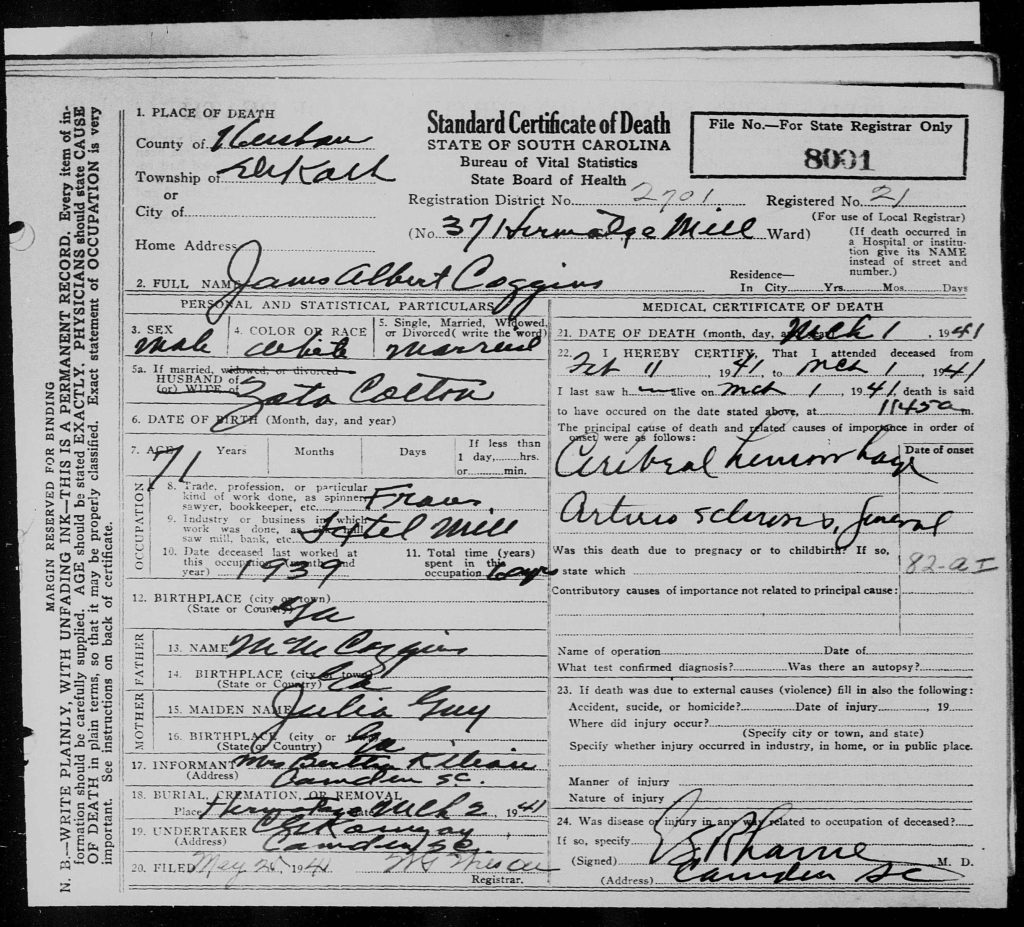 MARGIN RESERVED FOR BINDING
N. B.—WRITE PLAINLY, WITH UNFADING INK—THIS IS A PERMANENT RECORD. Every item of in-
formation should be carefully supplied. AGE should be stated EXACTLY. PHYSICIANS should state CAUSE
OF DEATH in plain terms, so that it may be properly classified. Exact statement of OCCUPATION is very
important. See instructions on back of certificate.
1. PLACE OF DEATH
County of Kershaw
Township of DeKalb
or
City of
Home Address
Standard Certificate of Death
STATE OF SOUTH CAROLINA
Bureau of Vital Statistics
State Board of Health
File No.—For State Registrar Only
8091
Registration District No. 2701 Registered No. 21
(For use of Local Registrar)
(No. 37 Hermatge Mill Ward)
(If death occurred in
a Hospital or institu-
tion give its NAME
instead of street and
number.)
2. FULL NAME James Albert Coggins
Residence—
In City Yrs. Mos. Days
PERSONAL AND STATISTICAL PARTICULARS
3. SEX
Male
4. COLOR OR RACE
White
5. Single, Married, Widowed,
or Divorced (write the word)
Married
5a. If married, widowed, or divorced
HUSBAND of
(or) WIFE of
Colton
6. DATE OF BIRTH (Month, day, and year)
7. AGE 71 Years Months Days
If less than
1 day, hrs.
or min.
OCCUPATION
8. Trade, profession, or particular
kind of work done, as spinner,
sawyer, bookkeeper, etc.
9. Industry or business in which
work was done, as
saw mill, bank, etc. Mill
10. Date deceased last worked at
this occupation (month and
year) 1939
11. Total time (years)
spent in this
occupation
12. BIRTHPLACE (city or town)
(State or Country) Ga
FATHER
13. NAME M M Coggins
14. BIRTHPLACE (city or town)
(State or Country) Ga
MOTHER
15. MAIDEN NAME Julia Guy
16. BIRTHPLACE (city or town)
(State or Country) Ga
17. INFORMANT Mrs Bertha
(Address) Camden SC.
18. BURIAL, CREMATION, OR REMOVAL
Place Hermitage Mch 2, 1941
19. UNDERTAKER
(Address) Camden SC
20. FILED May 25, 1941
Registrar.
MEDICAL CERTIFICATE OF DEATH
21. DATE OF DEATH (month, day, Mch 1, 1941
22. I HEREBY CERTIFY, That I attended deceased from
Feb 11, 1941, to Mch 1, 1941
I last saw h alive on Mch 1, 1941, death is said
to have occured on the date stated above, at 1145a m.
The principal cause of death and related causes of importance in order of
onset) were as follows:
Date of onset
Cerebral hemorrhage
Arturo sclerosis, general
Was this death due to pregnacy or to childbirth? If so,
state which
82-a I
Contributory causes of importance not related to principal cause:
Name of operation Date of
What test confirmed diagnosis? Was there an autopsy?
23. If death was due to external causes (violence) fill in also the following:
Accident, suicide, or homicide? Date of injury , 19
Where did injury occur?
(Specify city or town, and state)
Specify whether injury occurred in industry, in home, or in public place.
Manner of injury
Nature of injury
24. Was disease or injury in any way related to occupation of deceased?
If so, specify
(Signed) Rhame M. D.
(Address) Camden SC